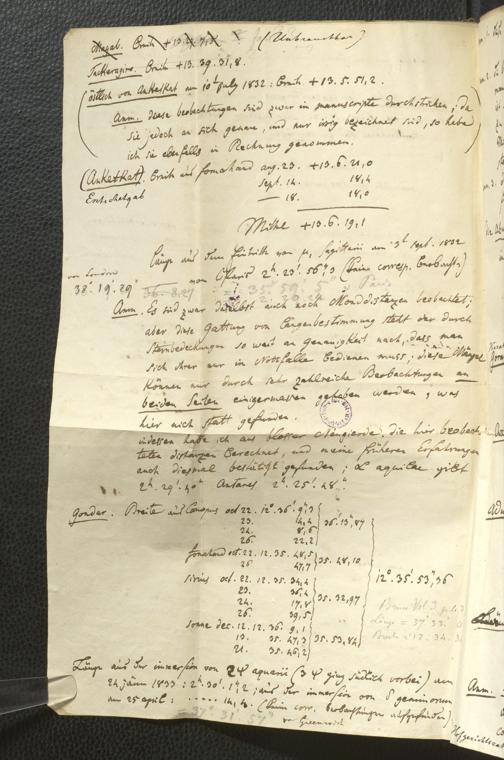 Breite +13. (Unbrauchbar)
Takkeragiro. Breite +13. 39. 31,8.
(östlich von Anketkat am 10t July 1832: Breite +13. 5. 51,2.
Anm. diese beobachtungen sind zwar im manuscripte durchstrichen; da
sie jedoch an sich genau, und nur irrig bezeichnet sind, so habe
ich sie ebenfalls in Rechnung genommen.
(Anketkat). Breite aus fomahand aug. 23. +13. 6. 21,0
Sept. 14. 18,4
— 18. 18,0
Entschetgab
Mittel +13. 6. 19,1
Länge aus dem Eintritte von μ, Sagittarii am 3t Sept. 1832
von Paris 2h. 23'. 56",3 (keine corresp. Beobacht.)
von London
38°. 19'. 29"
Anm. Es sind zwar daselbst auch noch Monddistanzen beobachtet;
aber diese Gattung von Längenbestimmung steht der durch
Sternbedeckungen so weit an Genauigkeit nach, dass man
sich ihrer nur im Nothfalle bedienen muss; diese Mängel
können nur durch sehr zahlreiche Beobachtungen an
beiden Seiten einigermassen gehoben werden, was
hier nicht statt gefunden.
indessen habe ich aus blosser Neugierde, die hier beobach-
teten distanzen berechnet, und meine früheren Erfahrungen
auch diesmal bestätigt gefunden; α aquilae gibt
2h. 29'. 40" Antares 2h. 25'. 48"
Gondar. Breite aus Canopus oct. 22. 12°. 36'. 9",3
23. 14,4
24. 8,6
26. 22,2
36. 13",87
fomahand oct. 22. 12. 35. 48,5
26 47,7
35. 48,10
Sirius oct. 22. 12. 35. 34,4
23. 36,4
24. 17,8
26. 39,5
35. 32,97
12°. 35'. 53",36
Sonne dec. 12. 12. 36. 9,1
19. 35. 47,3
21. 35. 46,2
35. 53,84
Länge = 37° 33'
Breite = 12. 34.
Länge aus der immersion von 2 ψ aquarii (3 ψ ging südlich vorbei) am
24 jänn 1833: 2h. 30'. 1",2; aus der immersion von δ geminorum
am 25 april: (keine corr. beobachtungen aufgefunden)
37° 31' 57"
v. Greenwich